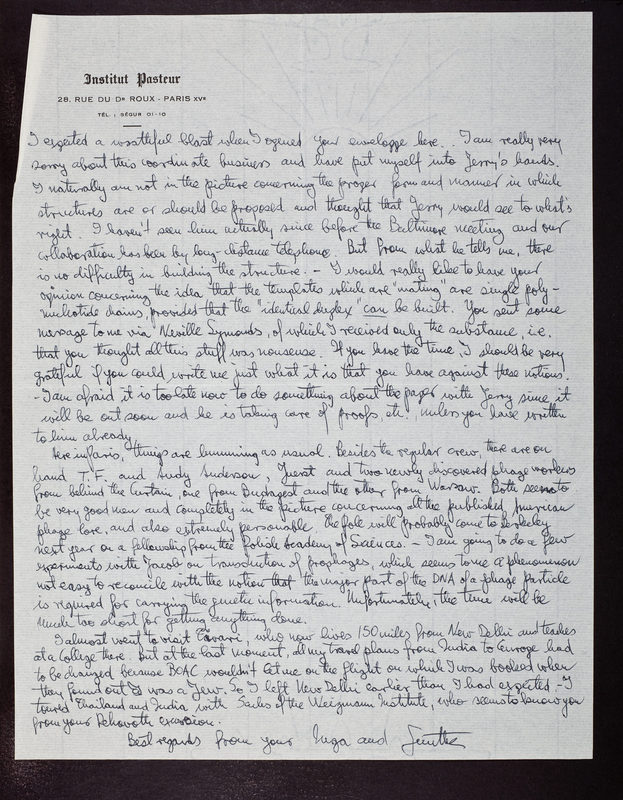 Institut Pasteur
28, RUE DU Dr ROUX - PARIS XVe
TÉL.: SÉGUR 01-10
I expected a wrathful blast when I opened your enveloppe here. I am really very
sorry about this coordinate business and have put myself into Jerry's hands.
I naturally am not in the picture concerning the proper form and manner in which
structures are or should be proposed and thought that Jerry would see to what's
right. I haven't seen him actually since before the Baltimore meeting and our
collaboration has been by long-distance telephone. But from what he tells me, there
is no difficulty in building the structure. - I would really like to have your
opinion concerning the idea that the templates which are "mating" are single poly-
nucleotide chains, provided that the "identical duplex" can be built. You sent some
message to me via Neville Symonds, of which I received only the substance, i.e.
that you thought all this stuff was nonsense. If you have the time, I should be very
grateful if you could write me just what it is that you have against these notions.
- I am afraid it is too late now to do something about the paper with Jerry since it
will be out soon and he is taking care of proofs, etc., unless you have written
to him already.
Here in Paris, things are humming as usual. Besides the regular crew, there are on
hand T.F. and Andy Anderson, Fuerst and two newly discovered phage workers
from behind the Curtain, one from Budapest and the other from Warsaw. Both seem to
be very good men and completely in the picture concerning all the published American
phage lore, and also extremely personable. The Pole will probably come to Berkeley
next year on a fellowship from the Polish Academy of Sciences. - I am going to do a few
experiments with Jacob on transduction of prophages, which seems to me a phenomenon
not easy to reconcile with the notion that the major part of the DNA of a phage particle
is required for carrying the genetic information. Unfortunately, the time will be
much too short for getting anything done.
I almost went to visit , who now lives 150 miles from New Delhi and teaches
at a College there. But at the last moment, all my travel plans from India to Europe had
to be changed because BOAC wouldn't let me on the flight on which I was booked when
they found out I was a Jew. So I left New Delhi earlier than I had expected. - I
toured Thailand and India with Sachs of the Weizmann Institute, who seems to know you
from your Rehovoth excursion.
Best regards from your Inga and Gunther